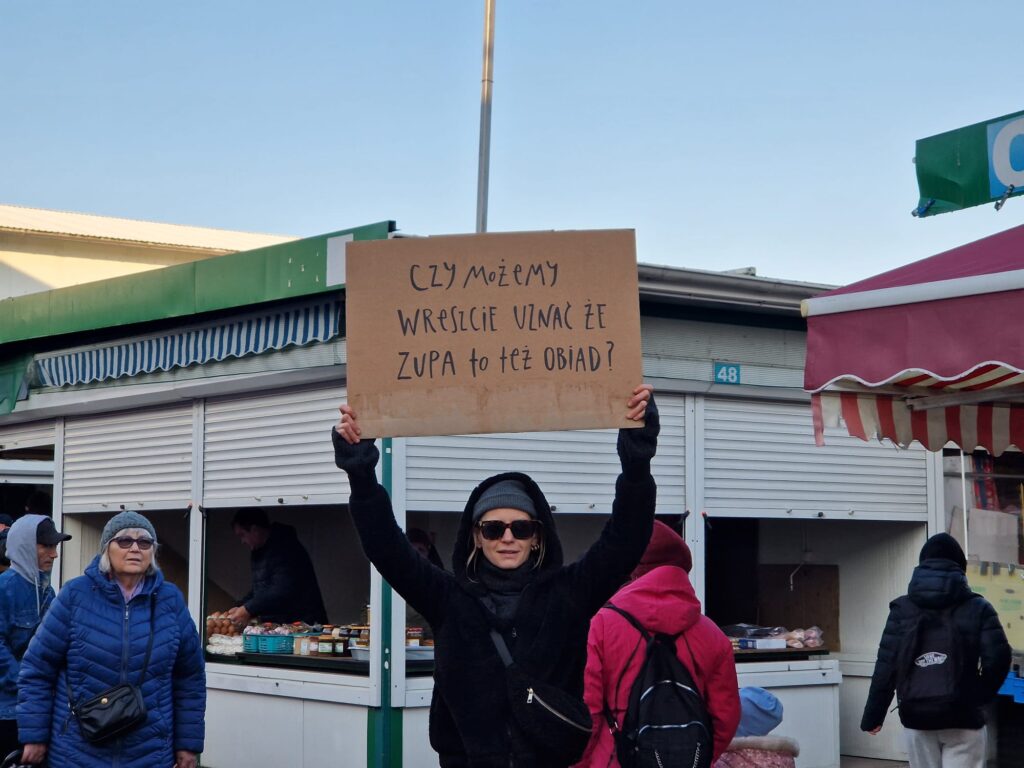 CZY MOŻEMY
WRESZCIE UZNAĆ ŻE
ZUPA to też OBIAD?
48
VANS